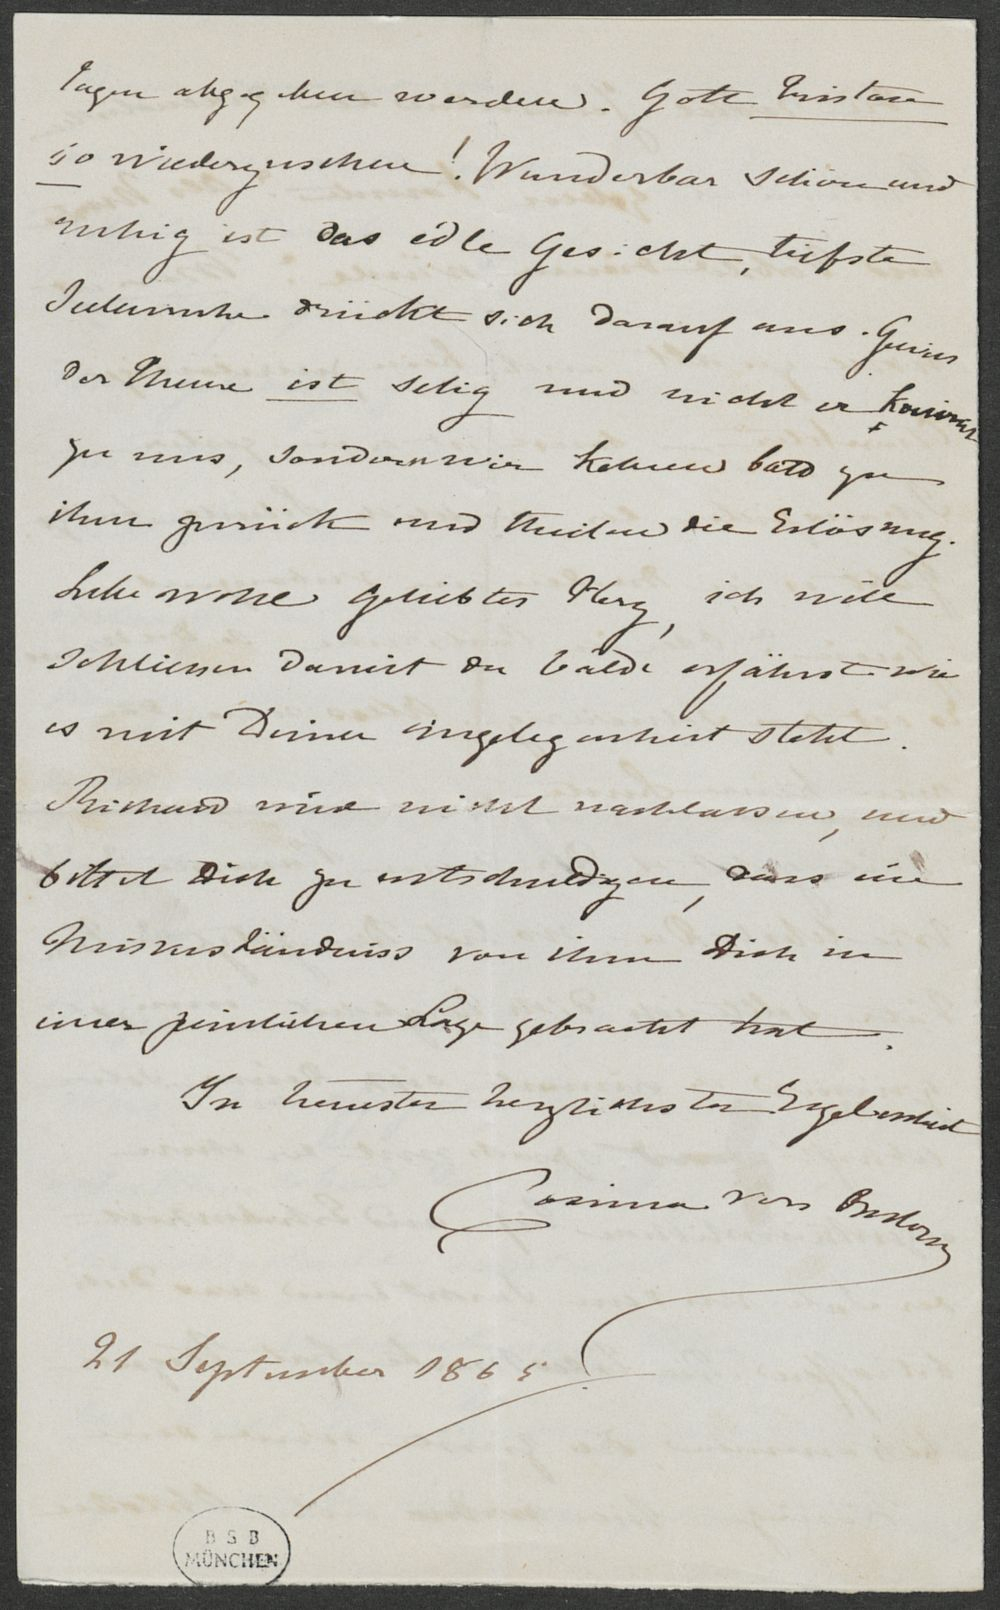 Tagen abgegeben werden. Gott Tristan
so wiederzusehen! Wunderbar schön und
ruhig ist das edle Gesicht, tiefste
Seelenruhe drückt sich darauf aus. Gewiss
der Theure ist selig und nicht er kommt
zu uns, sondern wir kehren bald zu
ihm zurück und theilen die Erlösung.
Lebe wohl geliebtes Herz, ich will
schliessen damit du balde erfährst wie
es mit Deiner Angelegenheit steht.
Richard wird nicht nachlassen, und
bittet Dich zu entschuldigen, dass ein
Missverständniss von ihm Dich in
einer peinlichen Lage gebracht hat.
In treuester herzlichster Ergebenheit
Cosima von Bülow
21 September 1865
BSB
MÜNCHEN